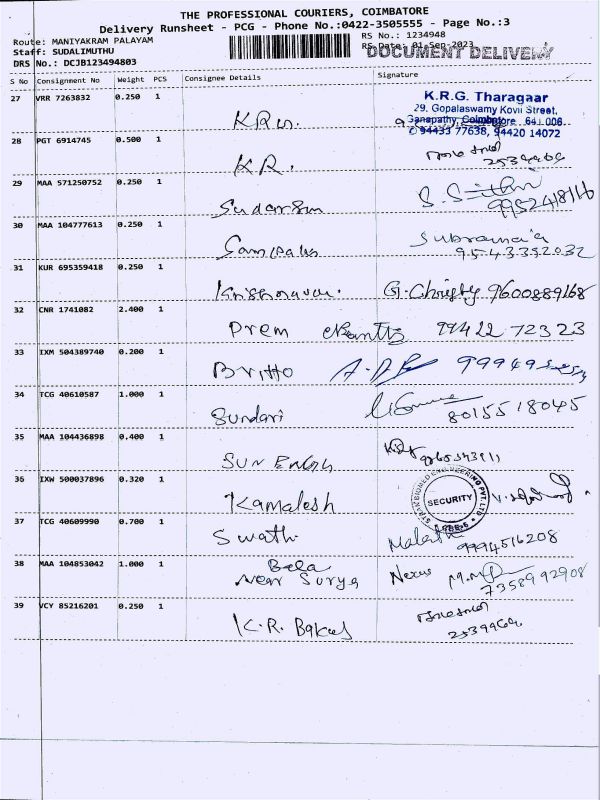 THE PROFESSIONAL COURIERS, COIMBATORE
Delivery Runsheet - PCG - Phone No.:0422-3505555 - Page No.:3
Route: MANIYAKRAM PALAYAM
RS No.: 1234948
Staff: SUDALIMUTHU
RS Date: 01-Sep-2023
DOCUMENT DELIVERY
DRS No.: DCJB123494803
S No Consignment No Weight PCS Consignee Details Signature
27 VRR 7263832 0.250 1
K.R.G. Tharagaar
29. Gopalaswamy Kovil Street,
Ganapathy, Coimbatore 641 006.
94433 77638, 94420 14072
28 PGT 6914745 0.500 1
K.R.
29 MAA 571250752 0.250 1
Sudarsan
9952418116
30 MAA 104777613 0.250 1
9543392032
31 KUR 695359418 0.250 1
G. Christy 9600889168
32 CNR 1741082 2.400 1
Prem 99422 72323
33 IXM 504389740 0.200 1
Britto
34 TCG 40610587 1.000 1
Sundari 8015518045
35 MAA 104436898 0.400 1
SUN
36 IXW 500037896 0.320 1
Kamalesh
SECURITY
37 TCG 40609990 0.700 1
Swathi 9994516208
38 MAA 104853042 1.000 1
Bela
Near Surya Nexus 7358992908
39 VCY 85216201 0.250 1
K.R. Bakes